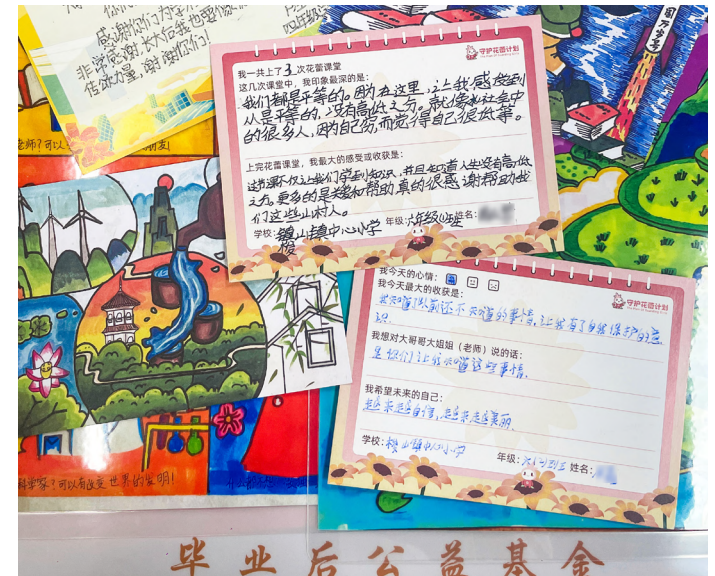 感谢你们为学
非常感谢,长大后我也要像你
传递力量,谢谢你们!
四年级
守护花蕾计划
我一共上了3次花蕾课堂
这几次课堂中,我印象最深的是:
我们都是平等的。因为在这里,让我感受到
人是平等的,没有高低之分。就像社会中
的很多人,因为自伤,而觉得自己很
上完花蕾课堂,我最大的感受或收获是:
这节课不仅让我们学到知识,并且知道人生没有高低
之分。更多的是关爱和帮助,真的很感谢帮助我
们这些山村人。
学校:山镇中心小学 年级:六年级 姓名:
国万岁号
守护花蕾计划
我今天的心情:
我今天最大的收获是:
我知道了以前还不知道的事情,让我有了自我保护的意
识.
我想对大哥哥大姐姐(老师)说的话:
是你们让我知道这些事情.
我希望未来的自己:
越来越自信,越来越美丽
学校:桃山镇中心小学 年级: 姓名:
老师?可以
科学家?可以有改变世界的发明!
毕业后公益基金